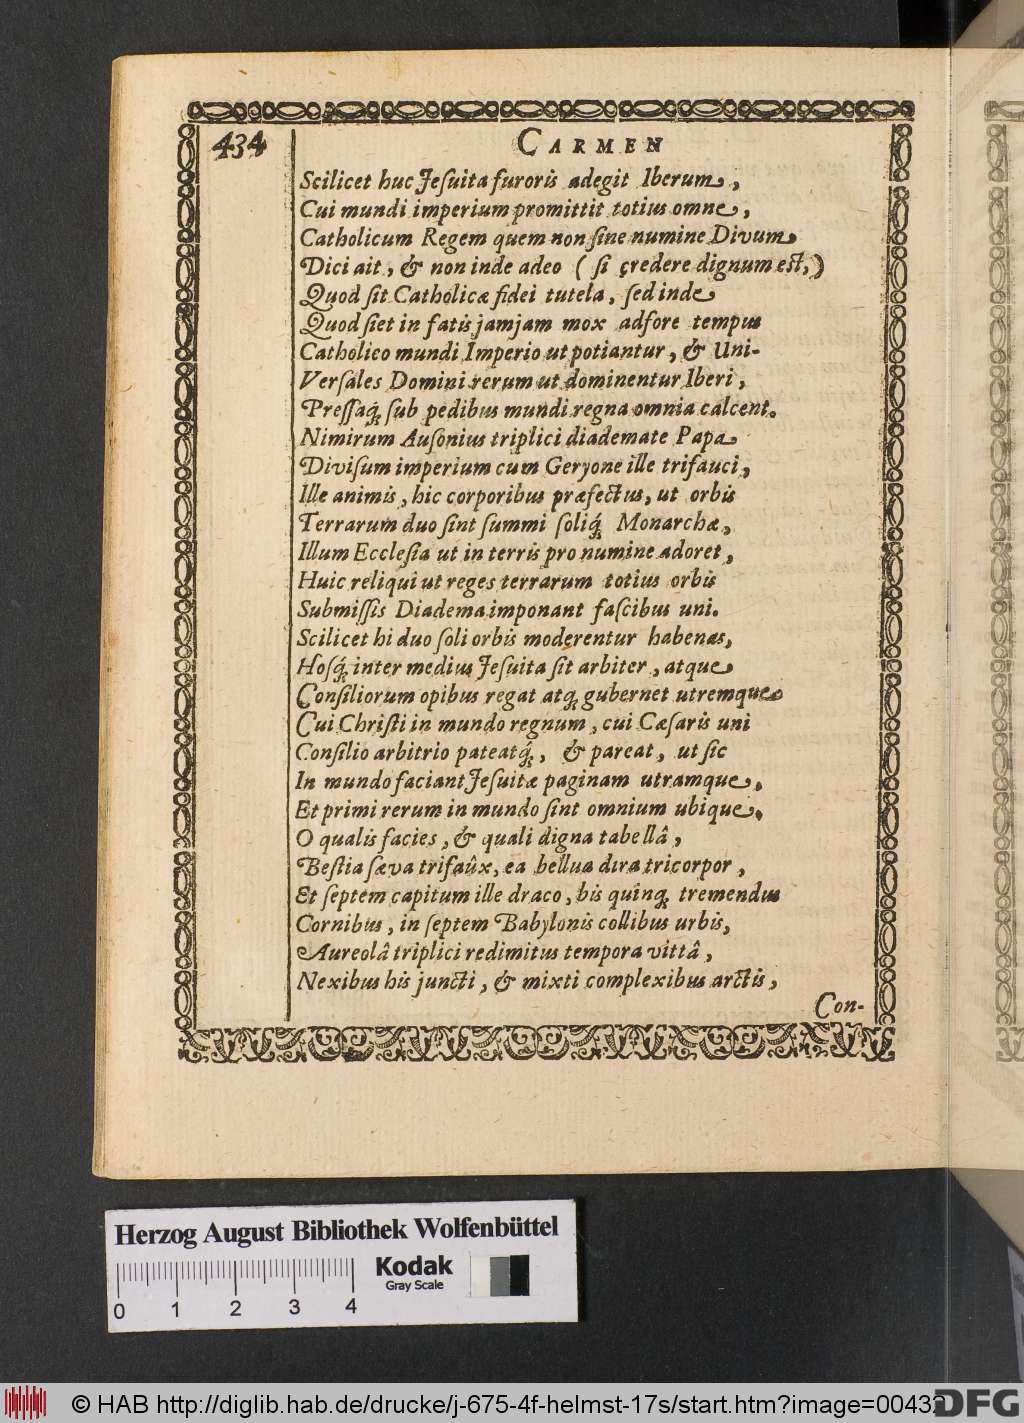 434
CARMEN
Scilicet huc Jeſuita furoris adegit Iberum,
Cui mundi imperium promittit totius omne,
Catholicum Regem quem non ſine numine Divum
Dici ait, & non inde adeo ( ſi credere dignum eſt, )
Quod ſit Catholicæ fidei tutela, ſed inde
Quod ſiet in fatis jamjam mox adfore tempus
Catholico mundi Imperio ut potiantur, & Uni-
Verſales Domini rerum ut dominentur Iberi,
Preſſaq́; ſub pedibus mundi regna omnia calcent.
Nimirum Auſonius triplici diademate Papa
Diviſum imperium cum Geryone ille trifauci,
Ille animis, hic corporibus præfectus, ut orbis
Terrarum duo ſint ſummi ſoliq́; Monarchæ,
Illum Eccleſia ut in terris pro numine adoret,
Huic reliqui ut reges terrarum totius orbis
Submiſſis Diadema imponant faſcibus uni.
Scilicet hi duo ſoli orbis moderentur habenas,
Hoſq́; inter medius Jeſuita ſit arbiter, atque
Conſiliorum opibus regat atq; gubernet utremque
Cui Chriſti in mundo regnum, cui Cæſaris uni
Conſilio arbitrio pateatq́;, & pareat, ut ſic
In mundo faciant Jeſuitæ paginam utramque,
Et primi rerum in mundo ſint omnium ubique.
O qualis facies, & quali digna tabellâ,
Beſtia ſæva trifaûx, ea bellua dira tricorpor,
Et ſeptem capitum ille draco, bis quinq; tremendus
Cornibus, in ſeptem Babylonis collibus urbis,
Aureolâ triplici redimitus tempora vittâ,
Nexibus his juncti, & mixti complexibus arctis,
Con-
Herzog August Bibliothek Wolfenbüttel
Kodak
Gray Scale
0 1 2 3 4
© HAB http://diglib.hab.de/drucke/j-675-4f-helmst-17s/start.htm?image=00432
DFG